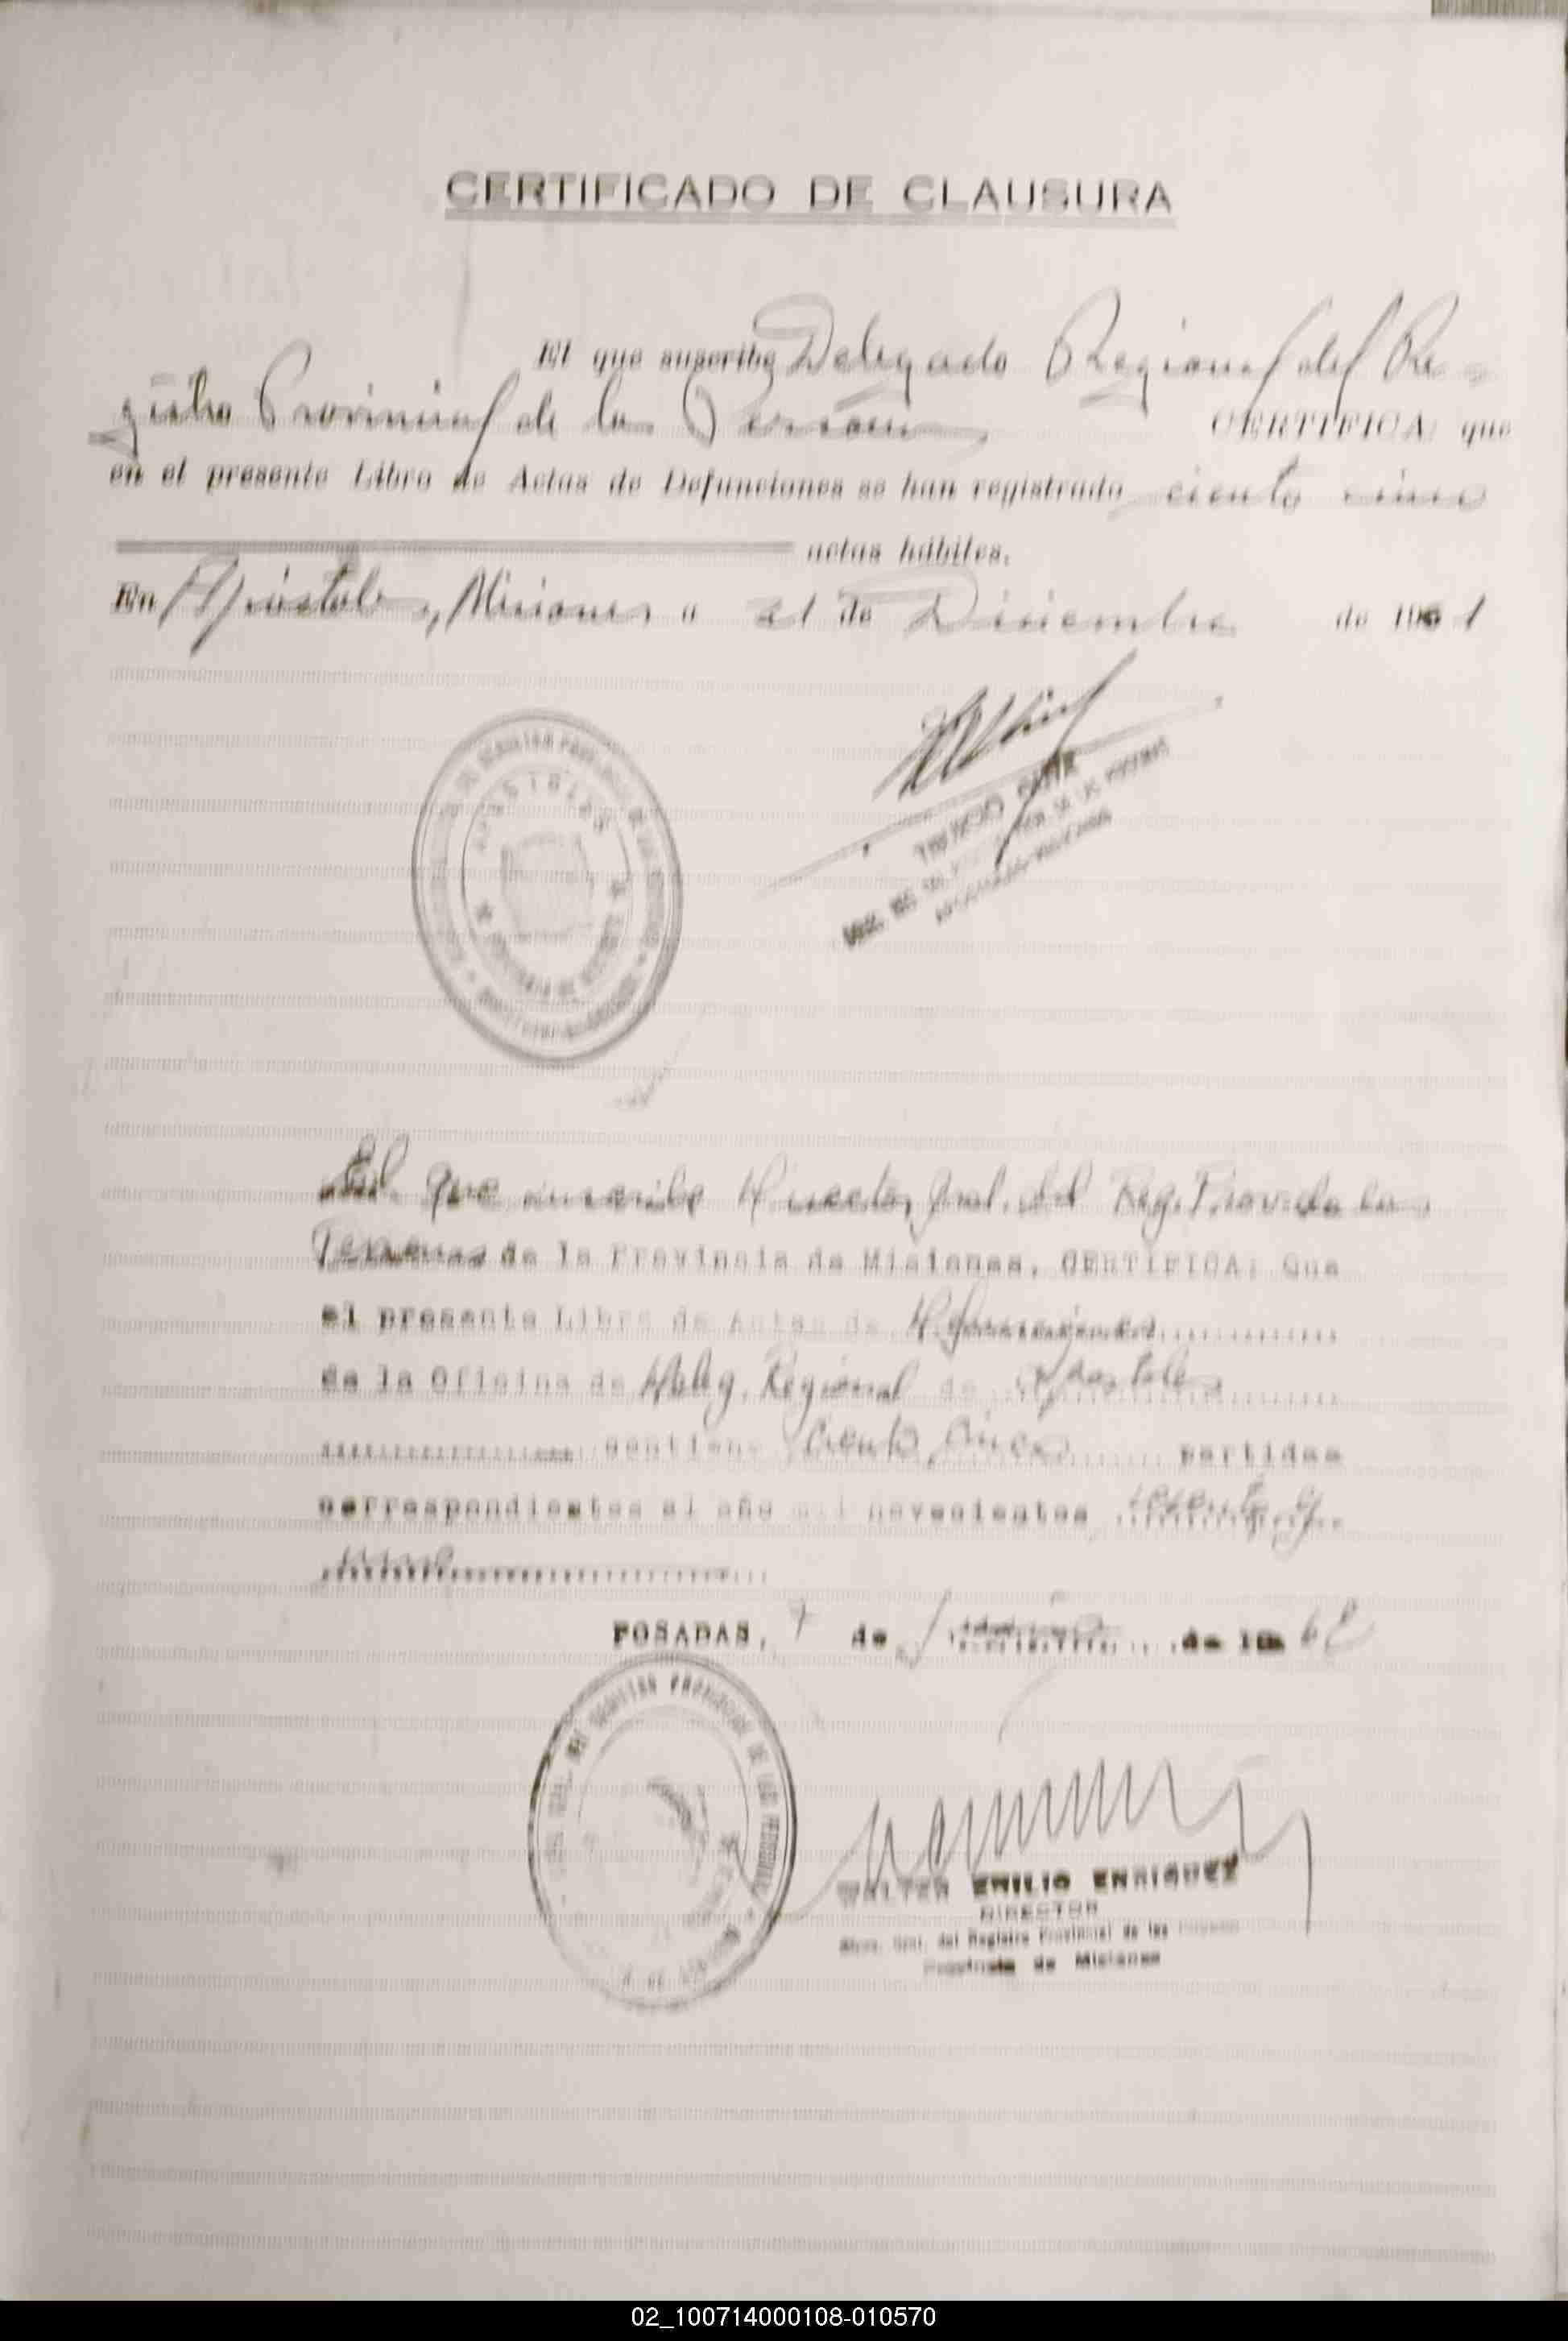 CERTIFICADO DE CLAUSURA
El que suscribe Delegado Regional del Re-
gistro Provincial de la Persona CERTIFICA: que
en el presente Libro de Actas de Defunciones se han registrado ciento cinco
actas hábiles.
En Apóstoles, Misiones a 31 de Diciembre de 1961
APOSTOLES
El que suscribe Director Gral. del Reg. Prov. de las
Personas de la Provincia de Misiones, CERTIFICA: Que
el presente Libro de Actas de Defunciones
de la Oficina de Deleg. Regional de Apostoles
contiene Ciento Cinco partidas
correspondientes al año mil novecientos sesenta y
uno
POSADAS, 7 de de 1962
REGISTRO PROVINCIAL DE LAS PERSONAS
WALTER EMILIO ENRIQUEZ
DIRECTOR
Direc. Gral. del Registro Provincial de las Personas
Provincia de Misiones
02_100714000108-010570